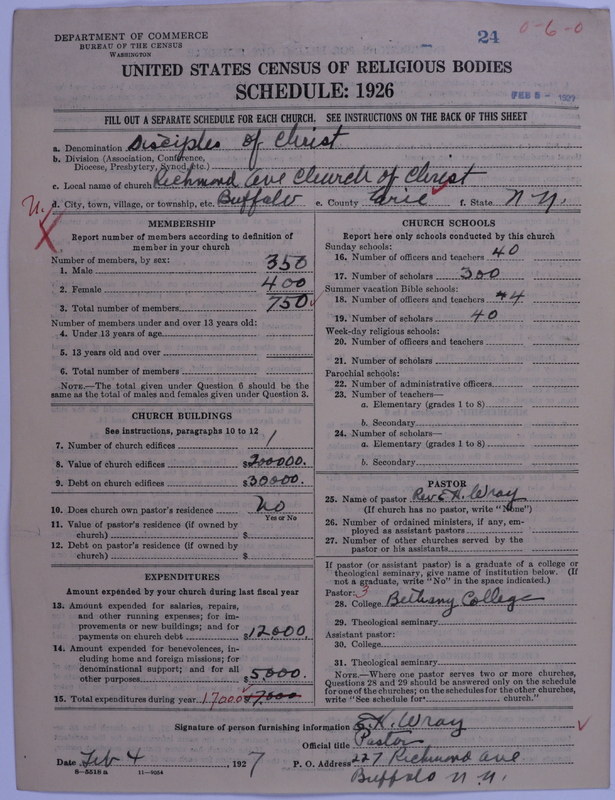 DEPARTMENT OF COMMERCE
BUREAU OF THE CENSUS
WASHINGTON
24
0-6-0
UNITED STATES CENSUS OF RELIGIOUS BODIES
SCHEDULE: 1926
FEB 8 - 1927
FILL OUT A SEPARATE SCHEDULE FOR EACH CHURCH. SEE INSTRUCTIONS ON THE BACK OF THIS SHEET
a. Denomination Disciples of Christ
b. Division (Association, Conference,
Diocese, Presbytery, Synod, etc.)
c. Local name of church Richmond Ave Church of Christ
d. City, town, village, or township, etc. Buffalo e. County Erie f. State N.Y.
U.
X
MEMBERSHIP
Report number of members according to definition of
member in your church
Number of members, by sex:
1. Male 350
2. Female 400
3. Total number of members 750
Number of members under and over 13 years old:
4. Under 13 years of age
5. 13 years old and over
6. Total number of members
NOTE.—The total given under Question 6 should be the
same as the total of males and females given under Question 3.
CHURCH BUILDINGS
See instructions, paragraphs 10 to 12
7. Number of church edifices 1
8. Value of church edifices $200000.
9. Debt on church edifices $30000.
10. Does church own pastor's residence No
Yes or No
11. Value of pastor's residence (if owned by
church) $
12. Debt on pastor's residence (if owned by
church) $
EXPENDITURES
Amount expended by your church during last fiscal year
13. Amount expended for salaries, repairs,
and other running expenses; for im-
provements or new buildings; and for
payments on church debt $12000
14. Amount expended for benevolences, in-
cluding home and foreign missions; for
denominational support; and for all
other purposes $5000.
15. Total expenditures during year 17000 $7,000
CHURCH SCHOOLS
Report here only schools conducted by this church
Sunday schools:
16. Number of officers and teachers 40
17. Number of scholars 300
Summer vacation Bible schools:
18. Number of officers and teachers 44
19. Number of scholars 40
Week-day religious schools:
20. Number of officers and teachers
21. Number of scholars
Parochial schools:
22. Number of administrative officers
23. Number of teachers—
a. Elementary (grades 1 to 8)
b. Secondary
24. Number of scholars—
a. Elementary (grades 1 to 8)
b. Secondary
PASTOR
25. Name of pastor Rev E.H. Wray
(If church has no pastor, write "None")
26. Number of ordained ministers, if any, em-
ployed as assistant pastors
27. Number of other churches served by the
pastor or his assistants
If pastor (or assistant pastor) is a graduate of a college or
theological seminary, give name of institution below. (If
not a graduate, write "No" in the space indicated.)
Pastor: 3
28. College Bethany College
29. Theological seminary
Assistant pastor:
30. College
31. Theological seminary
NOTE.—Where one pastor serves two or more churches,
Questions 28 and 29 should be answered only on the schedule
for one of the churches; on the schedules for the other churches,
write "See schedule for church."
Signature of person furnishing information E.H. Wray
Official title Pastor
Date Feb 4, 1927 P. O. Address 227 Richmond Ave
8-5518 a 11-9054 Buffalo N.Y.